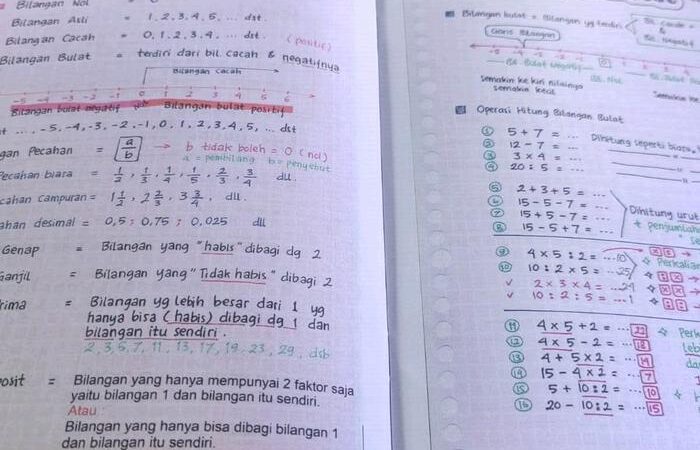 Bilangan Nol
Bilangan Asli = 1, 2, 3, 4, 5, ... dst.
Bilangan Cacah = 0, 1, 2, 3, 4, ... dst. (positif)
Bilangan Bulat = terdiri dari bil. cacah & negatifnya
Bilangan cacah
-5 -4 -3 -2 -1 0 1 2 3 4 5 6
Bilangan bulat negatif Bilangan bulat positif
..., -5, -4, -3, -2, -1, 0, 1, 2, 3, 4, 5, ... dst
gan Pecahan = a/b → b tidak boleh = 0 (nol)
a = pembilang b = penyebut
ecahan biasa = 1/2, 1/3, 1/4, 1/5, 2/3, 3/4 dll.
cahan campuran = 1 1/2, 2 2/3, 3 3/4, dll.
ahan desimal = 0,5 ; 0,75 ; 0,025 dll
Genap = Bilangan yang "habis" dibagi dg 2
Ganjil = Bilangan yang "Tidak habis" dibagi 2
rima = Bilangan yg lebih besar dari 1 yg
hanya bisa (habis) dibagi dg 1 dan
bilangan itu sendiri.
2, 3, 5, 7, 11, 13, 17, 19, 23, 29, dsb
osit = Bilangan yang hanya mempunyai 2 faktor saja
yaitu bilangan 1 dan bilangan itu sendiri.
Atau :
Bilangan yang hanya bisa dibagi bilangan 1
dan bilangan itu sendiri.
Bilangan bulat = Bilangan yg terdiri
Bil. cacah &
Bil. negatif
Garis Bilangan
Bil. Bulat negatif Bil. Nol
Semakin ke kiri nilainya
semakin kecil
Operasi Hitung Bilangan Bulat
① 5 + 7 = ...
② 12 - 7 = ... Dihitung seperti biasa
③ 3 × 4 = ...
④ 20 : 5 = ...
⑤ 2 + 3 + 5 = ...
⑥ 15 - 5 - 7 = ... Dihitung urut
⑦ 15 + 5 - 7 = ... + penjumlah
⑧ 15 - 5 + 7 = ...
⑨ 4 × 5 : 2 = ...10 Perkalian
⑩ 10 : 2 × 5 = ...25
v 2 × 3 × 4 = ...24
v 10 : 2 : 5 = ...1
⑪ 4 × 5 + 2 = ...22 Perk
⑫ 4 × 5 - 2 = ...18 leb
⑬ 4 + 5 × 2 = ...14 da
⑭ 15 - 4 × 2 = ...7
⑮ 5 + 10 : 2 = ...10
⑯ 20 - 10 : 2 = ...15